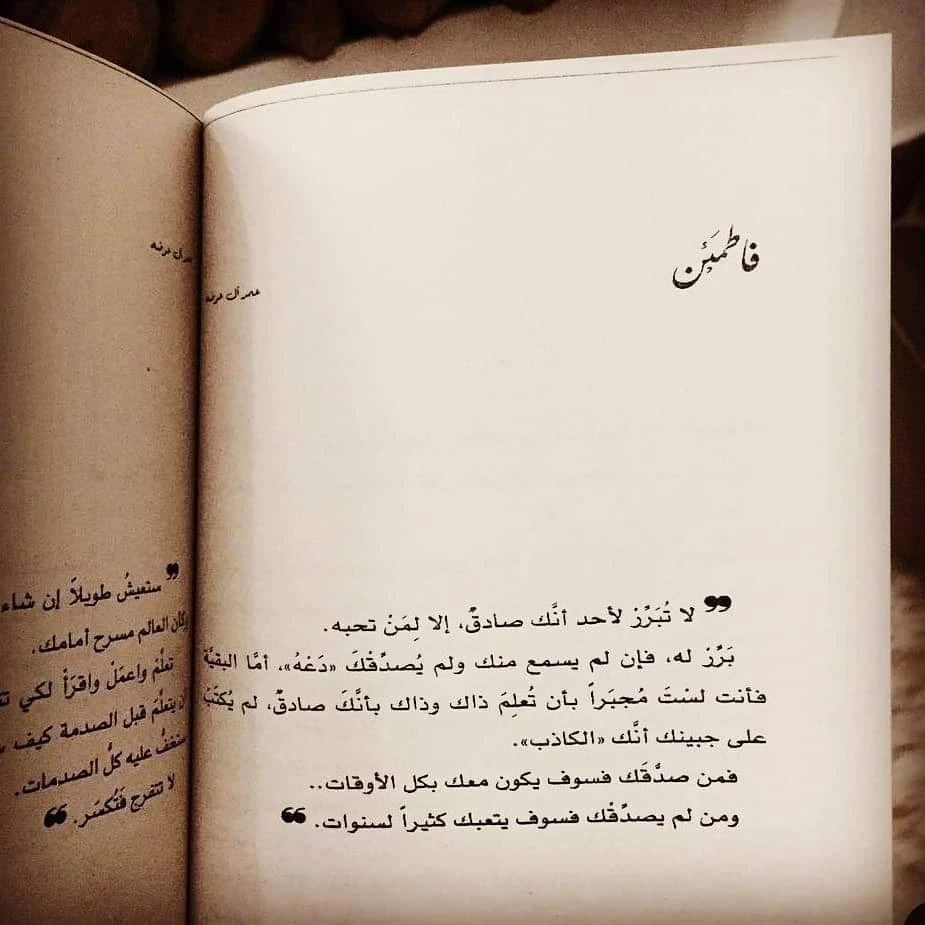 فاطمَئِن
عمر آل عوضه
❞ لا تُبَرِّرْ لأحد أنَّك صادقٌ، إلا لِمَنْ تحبه.
بَرِّرْ له، فإن لم يسمع منك ولم يُصدِّقْكَ «دَعْهُ»، أمَّا البقيَّة
فأنت لسْتَ مُجبَراً بأن تُعلِمَ ذاك وذاك بأنَّكَ صادقٌ، لم يُكتَبْ
على جبينك أنَّك «الكاذب».
فمن صدَّقَك فسوف يكون معك بكل الأوقات..
ومن لم يصدِّقْك فسوف يتعبك كثيراً لسنوات. ❝
آل عوضه
❞ ستعيشُ طويلاً إن شاء
وكأن العالم مسرح أمامك.
تعلَّمْ واعملْ واقرَأْ لكي
يتعلَّمَ قبل الصدمة كيف
عليه كلُّ الصدمات.
لا تتفرج فَتُكسَر. ❝